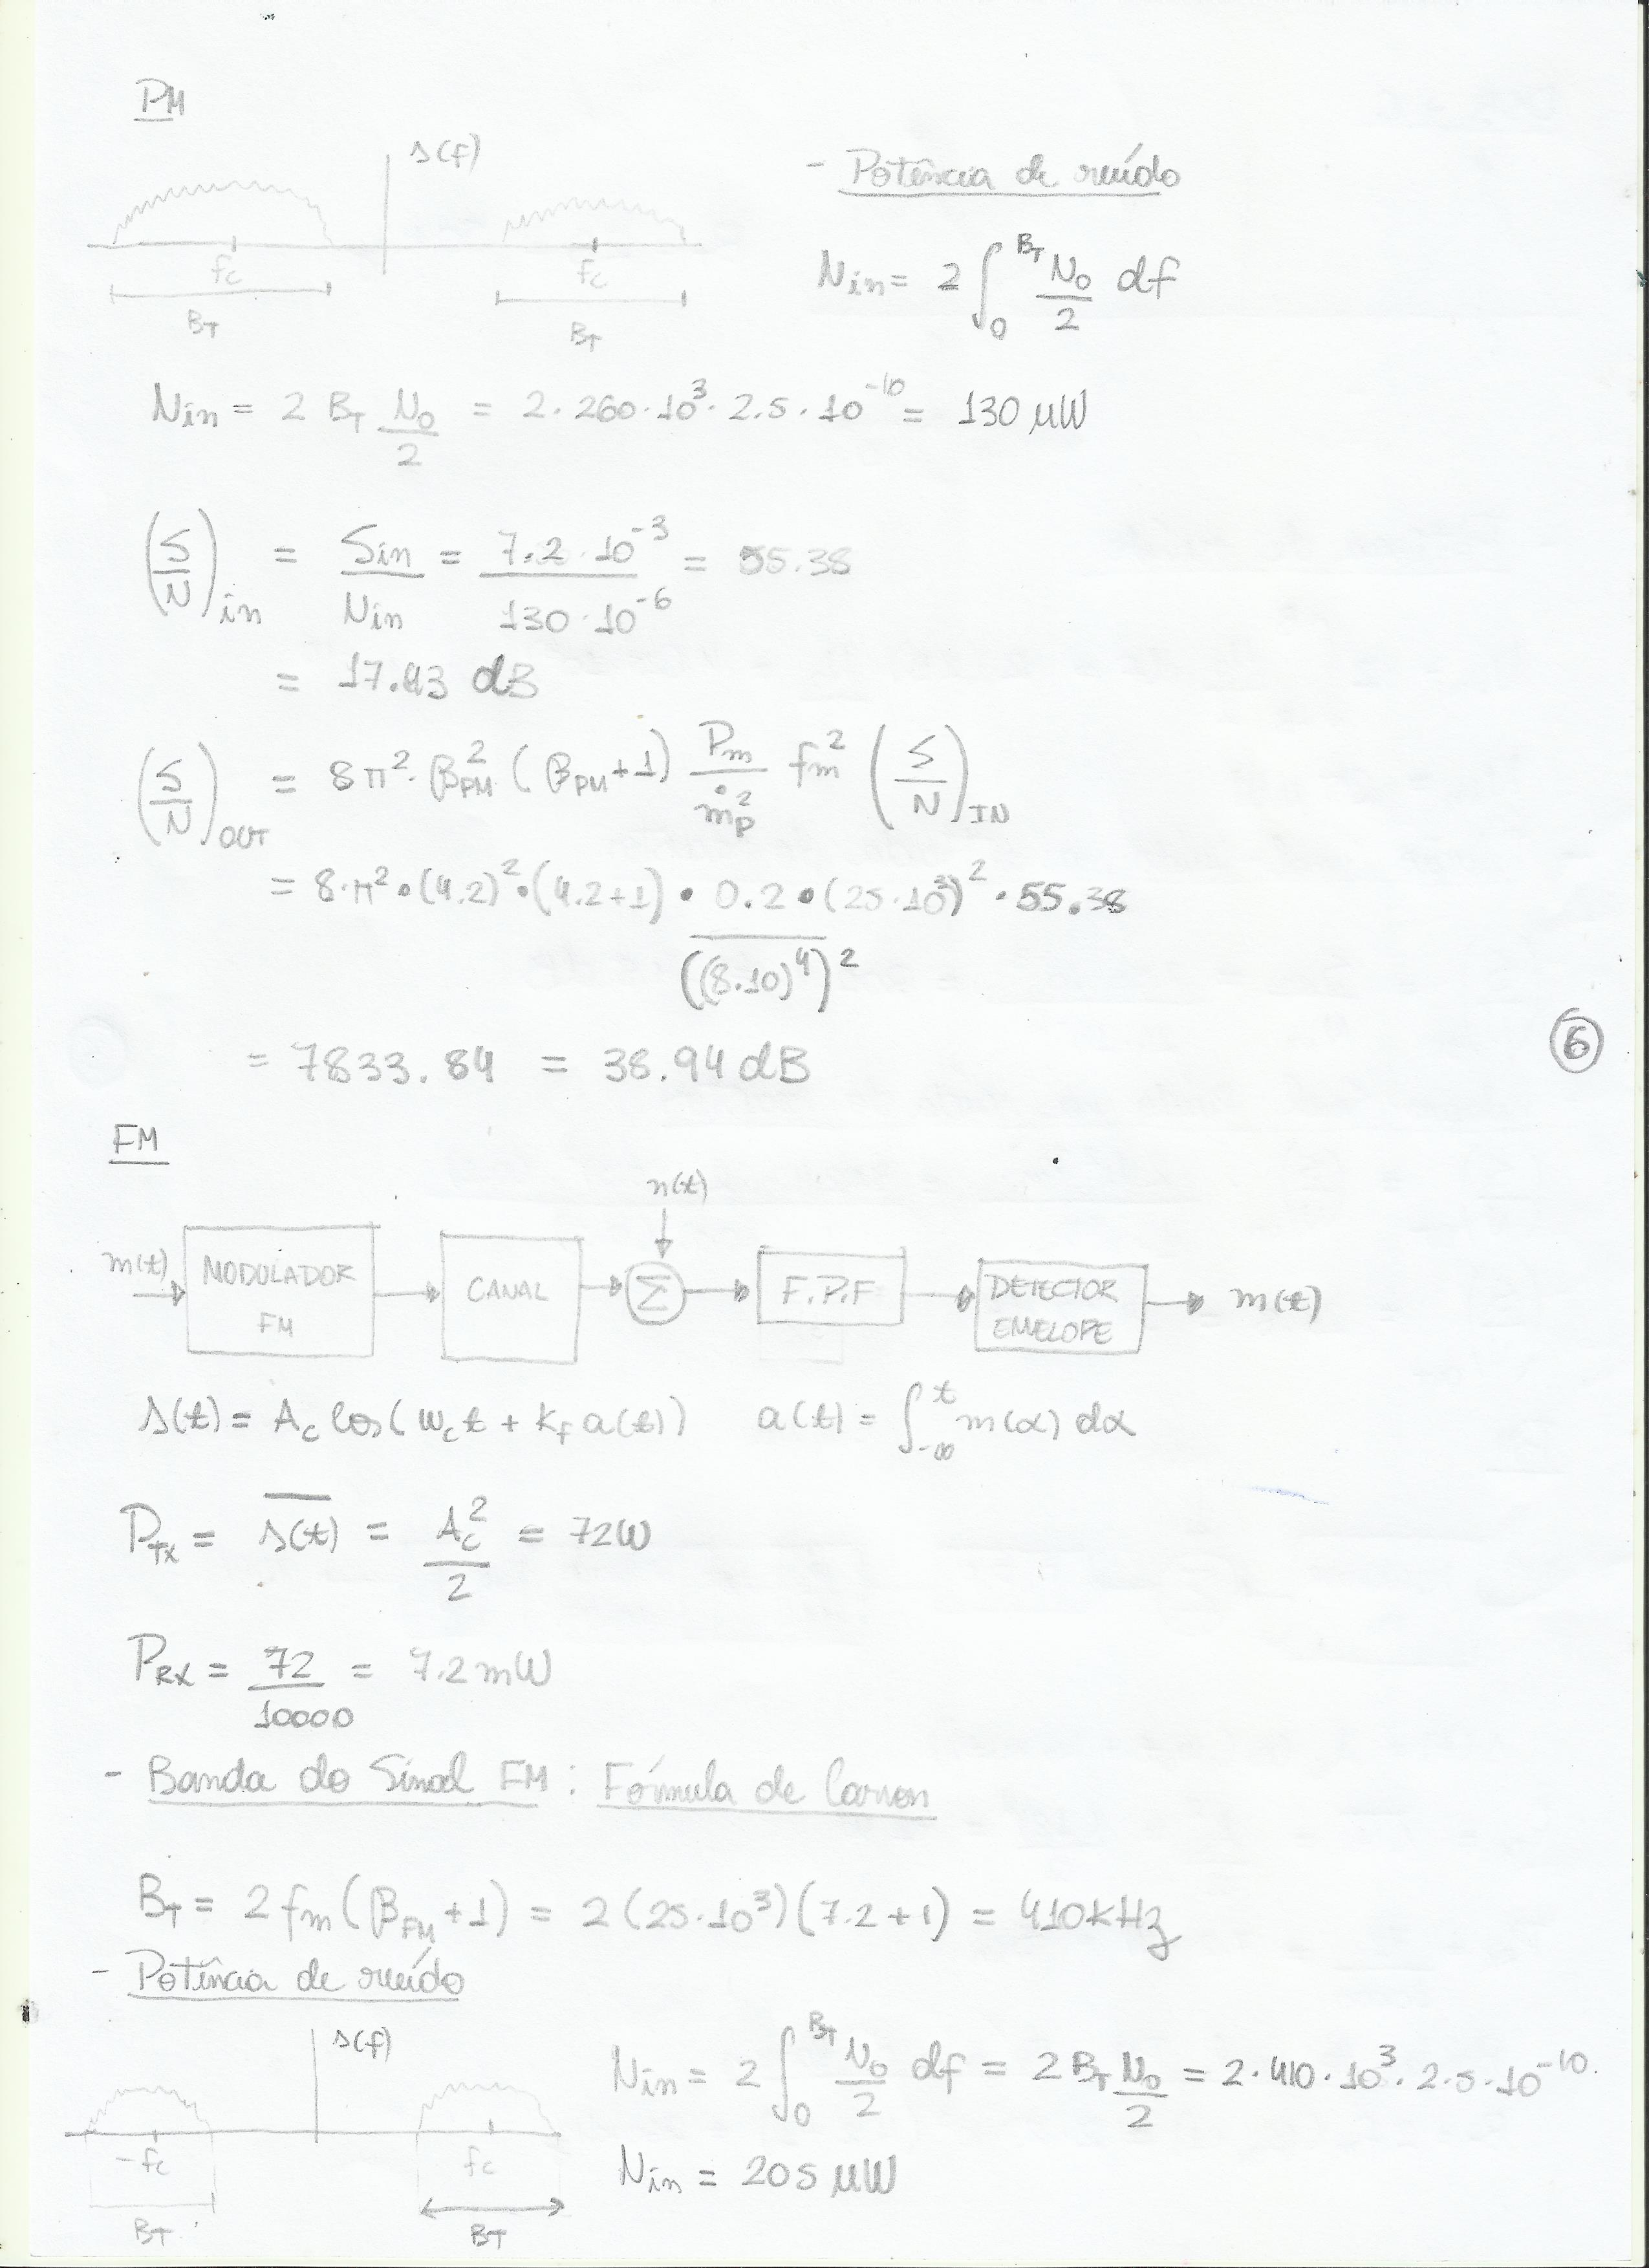 PM
s(f)
fc fc
BT BT
- Potência de ruído
Nin = 2 ∫₀^BT N₀/2 df
Nin = 2 BT N₀/2 = 2.260.10³.2.5.10⁻¹⁰ = 130 μW
(S/N)in = Sin/Nin = 7.2 10⁻³ / 130.10⁻⁶ = 55.38
= 17.43 dB
(S/N)OUT = 8π².βPM² (βPM+1) Pm/ṁp² fm² (S/N)IN
= 8.π².(4.2)².(4.2+1) . 0.2/((8.10)⁴)² . (25.10³)² . 55.38
= 7833.84 = 38.94 dB
6
FM
n(t)
m(t) MODULADOR FM CANAL Σ F.P.F DETECTOR ENVELOPE m(t)
s(t) = Ac cos(wc t + kf a(t)) a(t) = ∫₋∞^t m(α) dα
PTx = s(t)‾ = Ac²/2 = 72W
PRX = 72/10000 = 7.2 mW
- Banda do Sinal FM : Fórmula de Carson
BT = 2 fm (βFM+1) = 2 (25.10³)(7.2+1) = 410kHz
- Potência de ruído
s(f)
-fc fc
BT BT
Nin = 2 ∫₀^BT N₀/2 df = 2 BT N₀/2 = 2.410.10³.2.5.10⁻¹⁰.
Nin = 205 μW